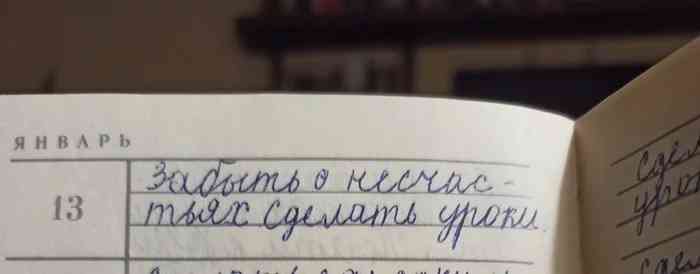 ЯНВАРЬ
13
Забыть о несчас-
тьях сделать уроки